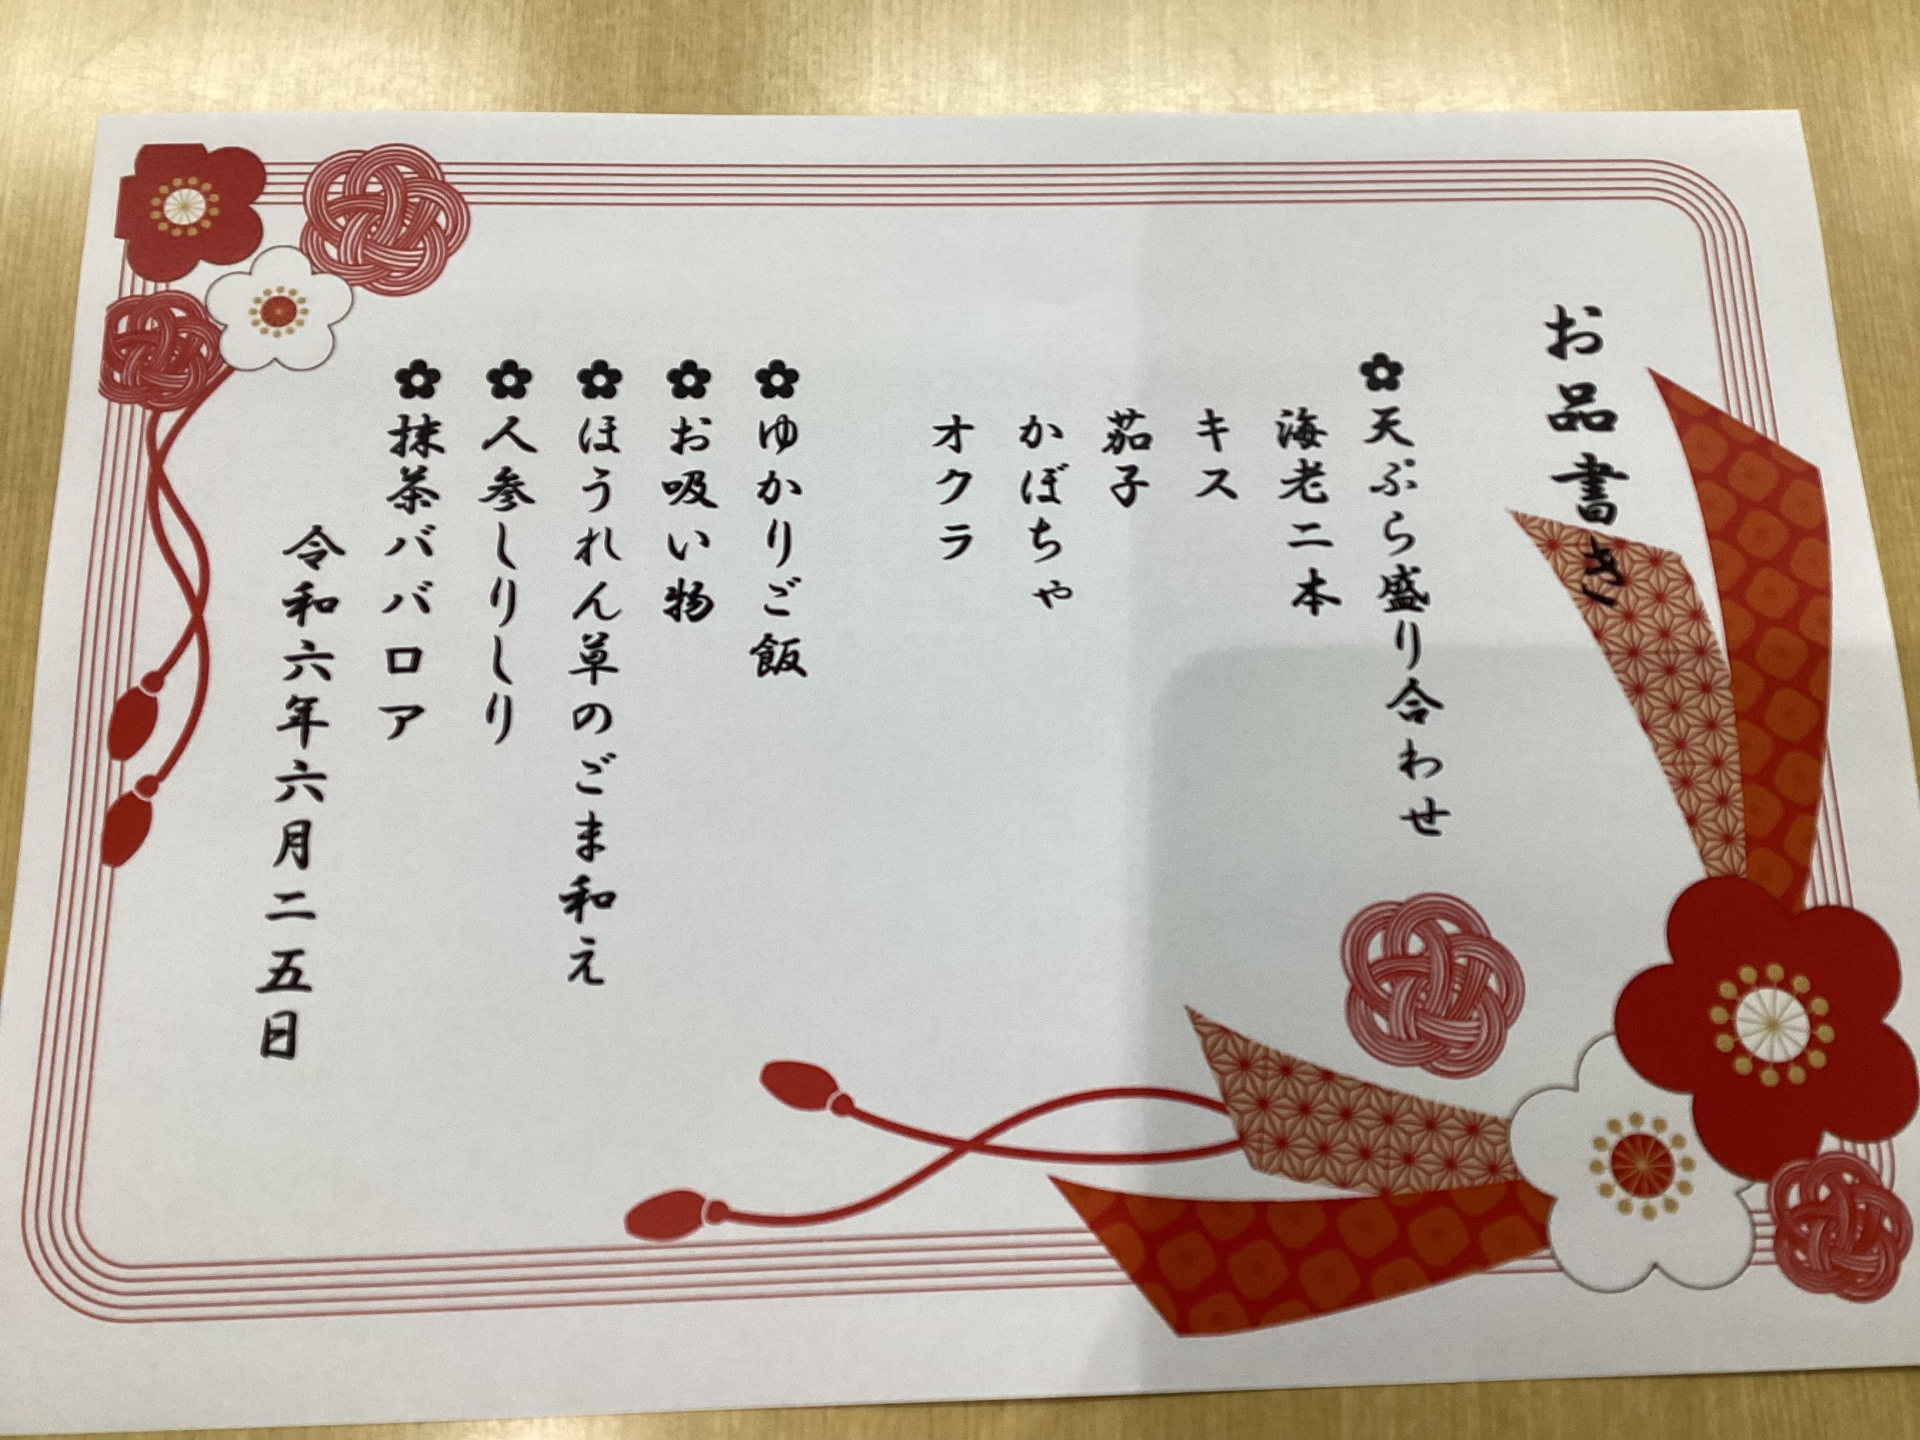 お品書き
✿天ぷら盛り合わせ
海老二本
キス
茄子
かぼちゃ
オクラ
✿ゆかりご飯
✿お吸い物
✿ほうれん草のごま和え
✿人参しりしり
✿抹茶ババロア
令和六年六月二五日